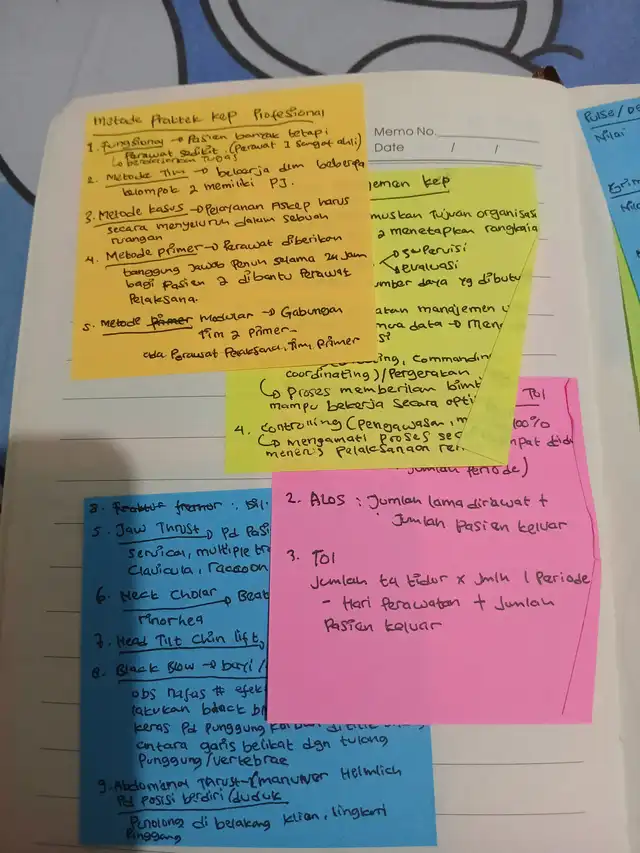 Metode Praktek Kep Profesional
1. Fungsional → Pasien banyak tetapi
Perawat sedikit. (Perawat 1 sangat ahli)
↳ berdasarkan Tugas
2. Metode Tim → bekerja dlm beberapa
kelompok 2 memiliki PJ.
3. Metode kasus → Pelayanan Askep harus
secara menyeluruh dalam sebuah
ruangan
4. Metode primer → Perawat diberikan
tanggung jawab Penuh selama 24 Jam
bagi Pasien 2 dibantu Perawat
Pelaksana.
5. Metode primer Modular → Gabungan
Tim 2 Primer
ada Perawat Pelaksana, Tim, Primer
Memo No.
Date / /
jemen kep
muskan Tujuan organisasi
2 menetapkan rangkaia
→ supervisi
→ evaluasi
mber daya yg dibutu
atan manajemen u
mua data → Men
si
ing, Commandin
coordinating) / Pergerakan
↳ Proses memberikan bimb
mampu bekerja secara opti
4. Controlling (Pengawasan, m
↳ mengamati Proses sec
menerus Pelaksanaan ren
TOI
100%
mpat tidu
Jumlah Periode)
2. ALOS : Jumlah lama dirawat +
Jumlah Pasien keluar
3. TOI
Jumlah tt tidur x Jmlh 1 Periode
- Hari Perawatan + Jumlah
Pasien keluar
5. Jaw Thrust → Pd Pasi
servical, multiple tr
Clavicula, raccoon
6. Neck Cholar → Beat
rinorhea
7. Head Tilt Chin lift,
8. Black Blow → bayi /
obs nafas # efek
lakukan black bl
keras Pd Punggung
antara garis belikat dgn tulong
Punggung/vertebrae
9. Abdominal Thrust → manuver Heimlich
Pd Posisi berdiri/duduk
Penolong di belakang klien, lingkari
Pinggang
Pulse/De
Nilai